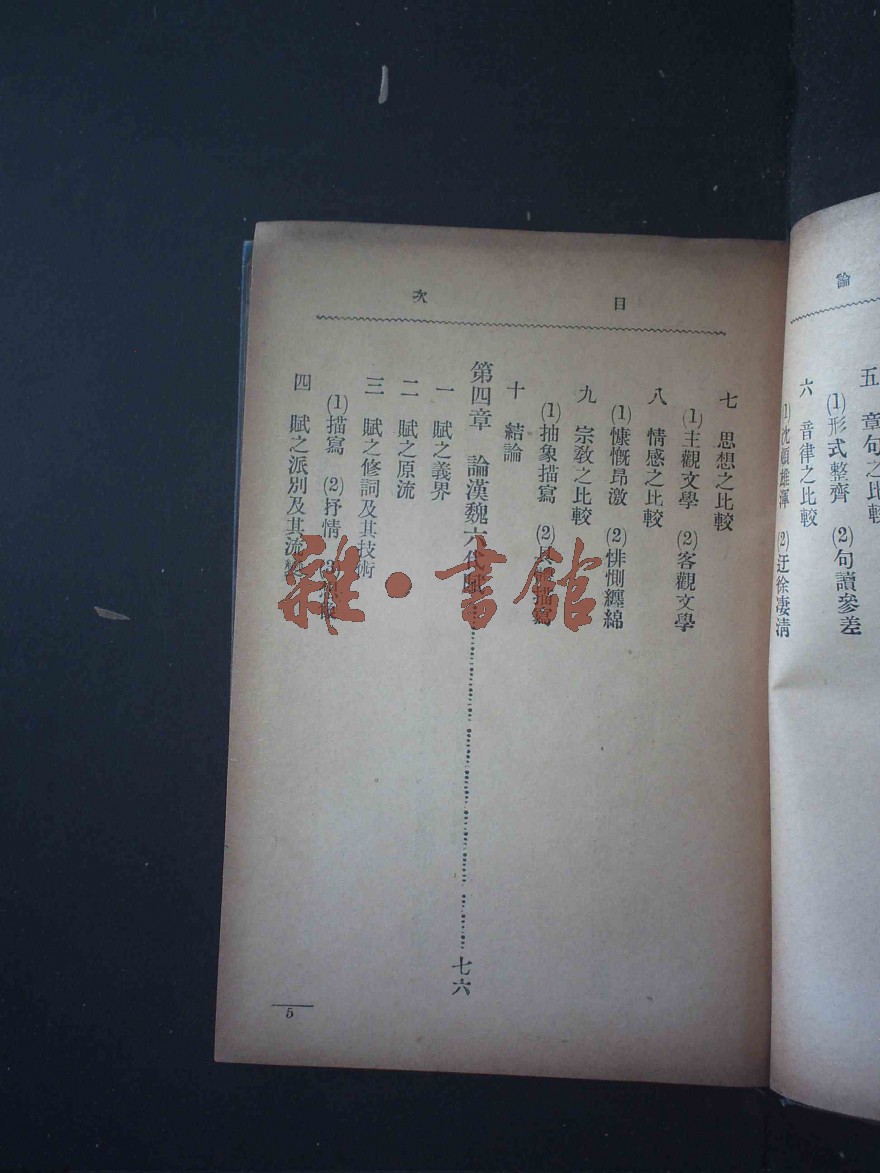 論
五 章句之比較
(1)形式整齊 (2)句讀參差
六 音律之比較
(1)沈頓雄渾 (2)迂徐淒清
目 次
七 思想之比較
(1)主觀文學 (2)客觀文學
八 情感之比較
(1)慷慨昂激 (2)悱惻纏綿
九 宗教之比較
(1)抽象描寫 (2)具體描寫
十 結論
第四章 論漢魏六代賦 七六
一 賦之義界
二 賦之原流
三 賦之修詞及其技術
(1)描寫 (2)抒情 (3)
四 賦之派別及其流變
5
雜·書館